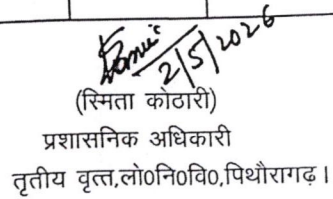 2/5/2026
(स्मिता कोठारी)
प्रशासनिक अधिकारी
तृतीय वृत्त,लो0नि0वि0,पिथौरागढ़।